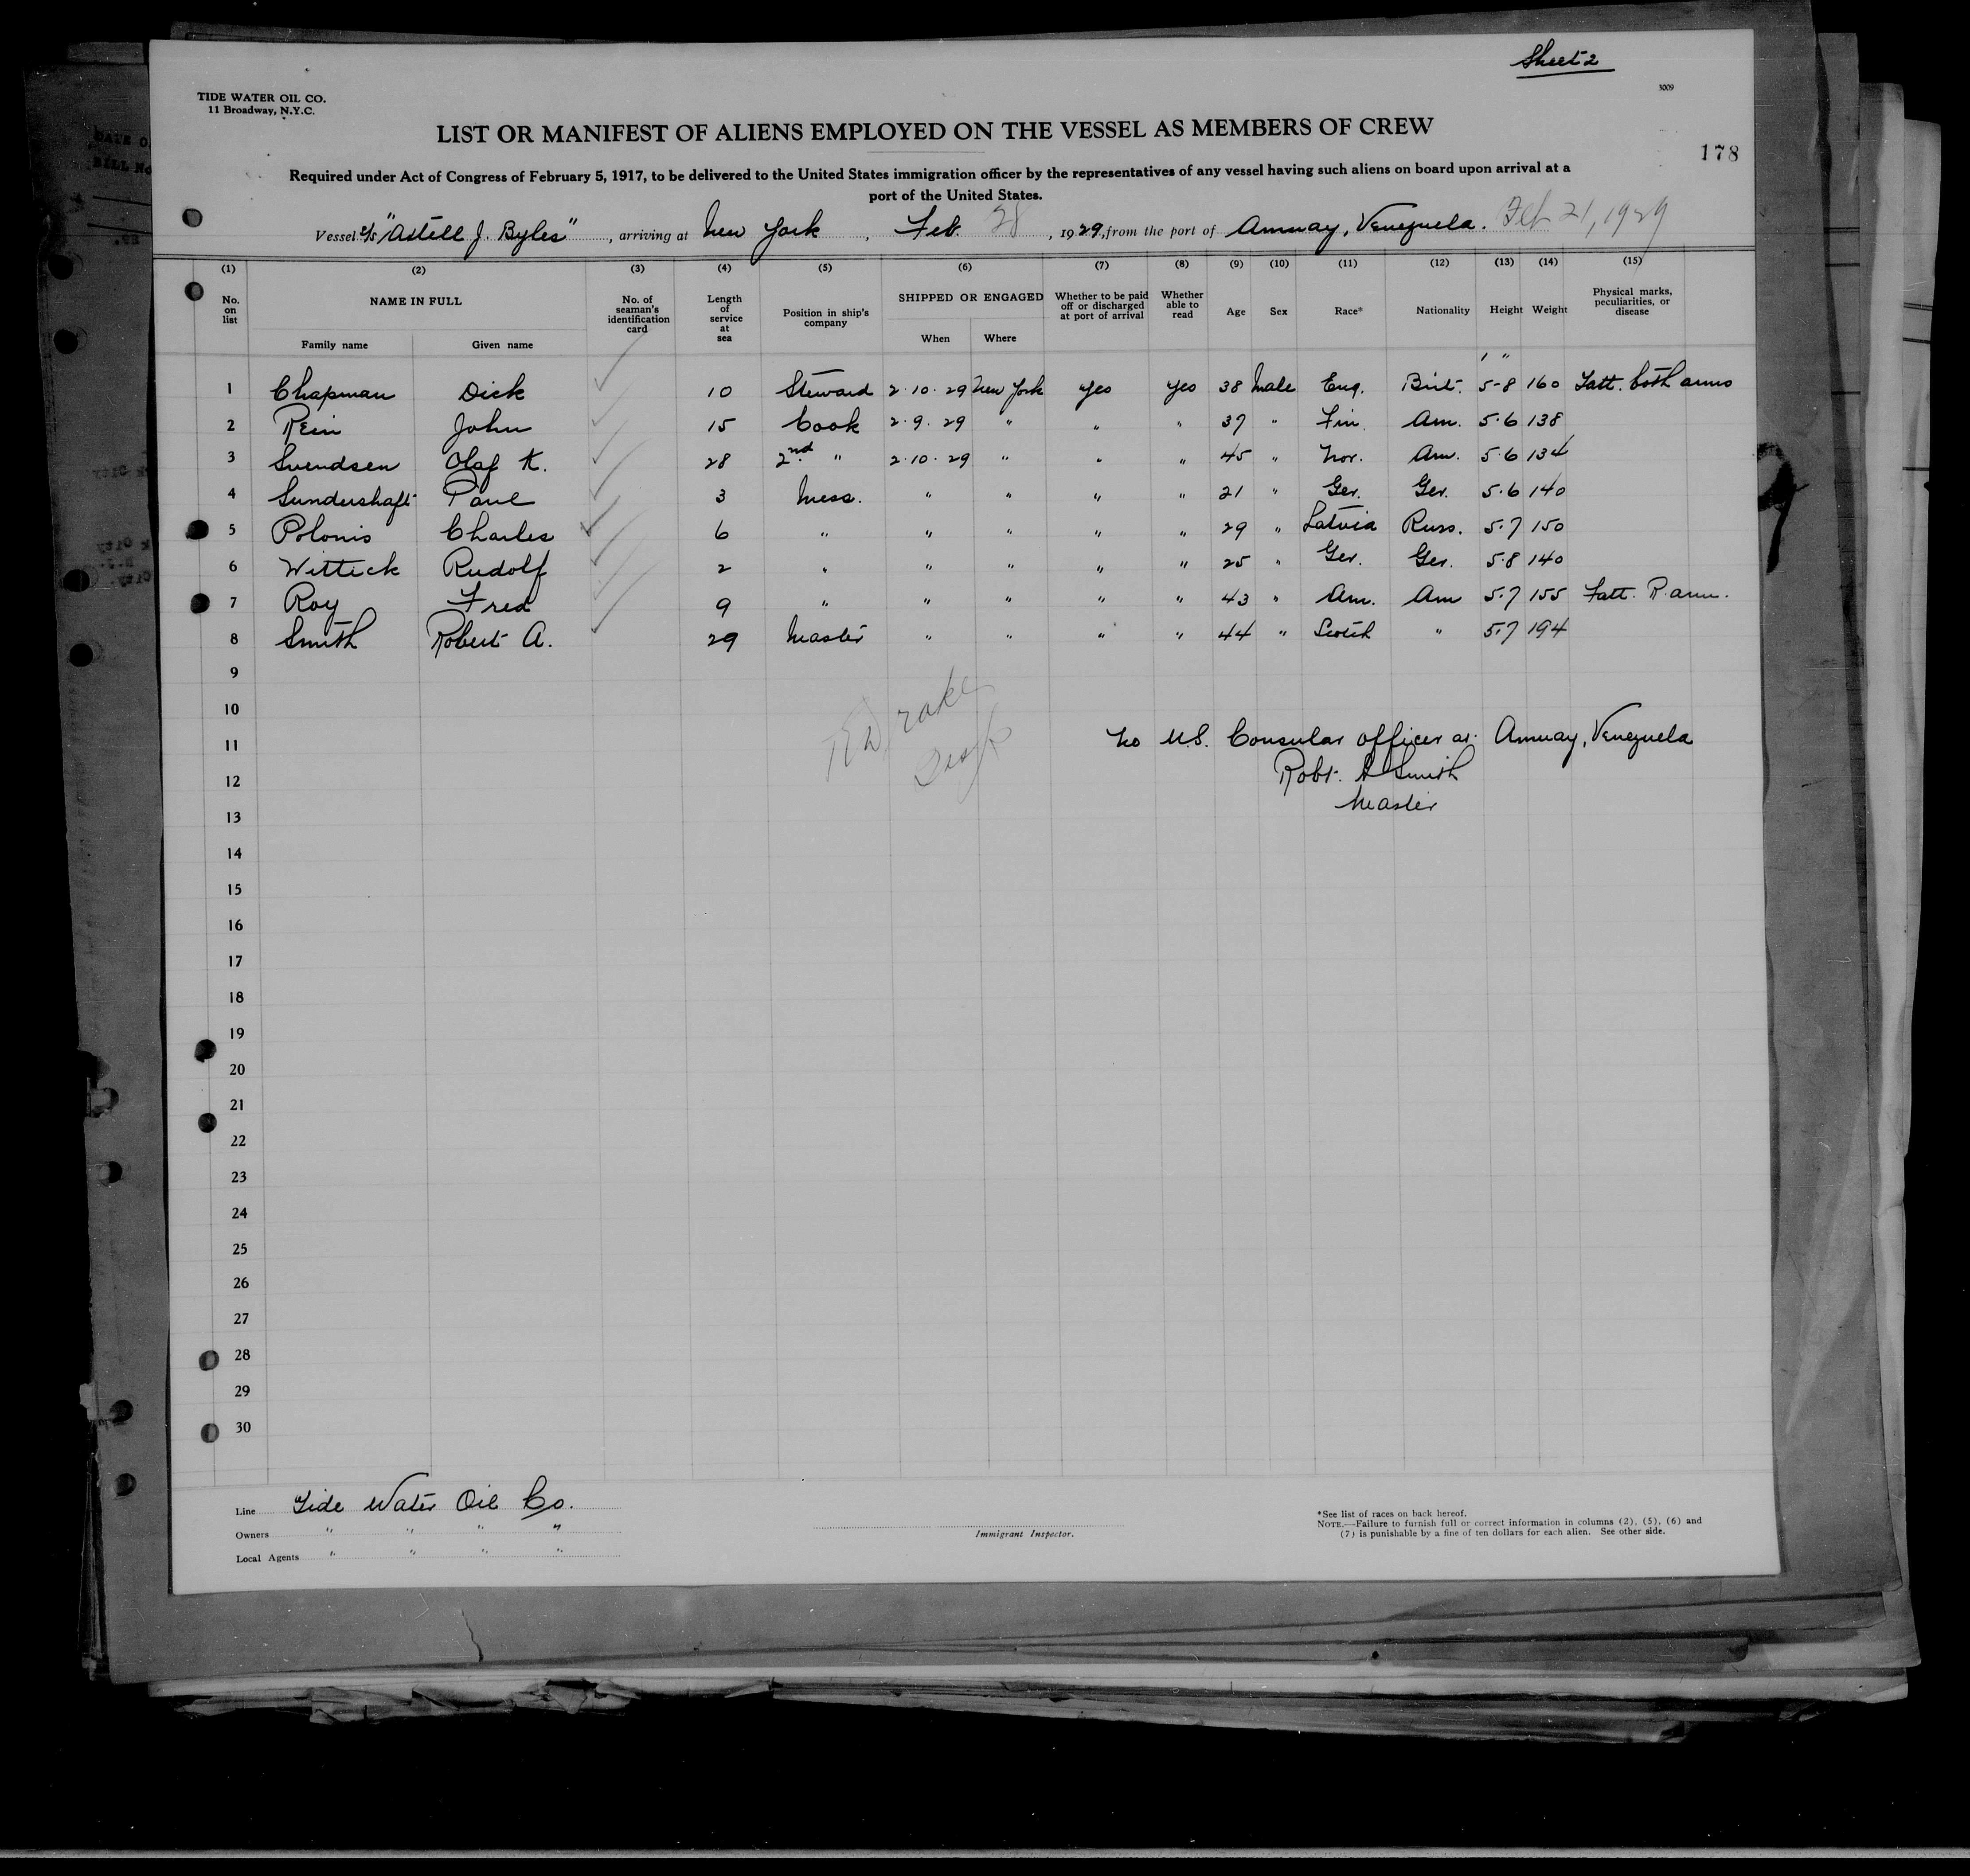 Sheet 2
TIDE WATER OIL CO.
11 Broadway, N.Y.C.
3009
LIST OR MANIFEST OF ALIENS EMPLOYED ON THE VESSEL AS MEMBERS OF CREW
178
Required under Act of Congress of February 5, 1917, to be delivered to the United States immigration officer by the representatives of any vessel having such aliens on board upon arrival at a
port of the United States.
Vessel S/S "Axtell J. Byles", arriving at New York, Feb. 28, 1929, from the port of Amuay, Venezuela. Feb 21, 1929
(1) (2) (3) (4) (5) (6) (7) (8) (9) (10) (11) (12) (13) (14) (15)
No. on list NAME IN FULL No. of seaman's identification card Length of service at sea Position in ship's company SHIPPED OR ENGAGED Whether to be paid off or discharged at port of arrival Whether able to read Age Sex Race* Nationality Height Weight Physical marks, peculiarities, or disease
Family name Given name When Where
' "
1 Chapman Dick 10 Steward 2·10·29 New York Yes Yes 38 Male Eng. Brit. 5-8 160 Tatt. both arms
2 Rein John 15 Cook 2·9·29 " " " 37 " Fin. Am. 5·6 138
3 Svendsen Olaf K. 28 2nd " 2·10·29 " " " 45 " Nor. Am. 5·6 134
4 Sundershaft Paul 3 Mess. " " " " 21 " Ger. Ger. 5·6 140
5 Polonis Charles 6 " " " " " 29 " Latvia Russ. 5·7 150
6 Wittick Rudolf 2 " " " " " 25 " Ger. Ger. 5·8 140
7 Roy Fred 9 " " " " " 43 " Am. Am 5·7 155 Tatt. R. arm.
8 Smith Robert A. 29 Master " " " " 44 " Scotch " 5·7 194
9
10
11 No U.S. Consular officer at Amuay, Venezuela
12 Robt. A Smith
13 Master
14
15
16
17
18
19
20
21
22
23
24
25
26
27
28
29
30
Line Tide Water Oil Co.
Owners " " " "
Local Agents " " " "
Immigrant Inspector.
*See list of races on back hereof.
NOTE.—Failure to furnish full or correct information in columns (2), (5), (6) and
(7) is punishable by a fine of ten dollars for each alien. See other side.